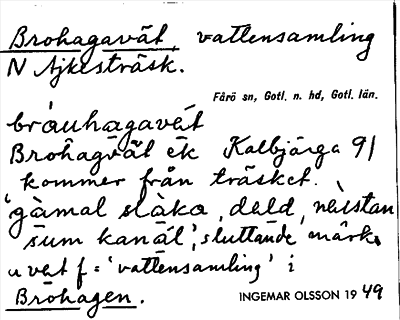 Brohagavät, vattensamling
N Ajkesträsk.
Fårö sn, Gotl. n. hd, Gotl. län.
bråuhagavät
Brohagvät ek Kalbjärga 91
kommer från träsket.
'gàmal slàka, däld, näistan
sum kanál', sluttande mark
u vät f = 'vattensamling' i
Brohagen.
INGEMAR OLSSON 1949